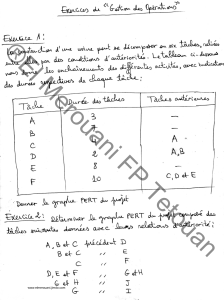 Exercices de "Gestion des Opérations"
Exercice 1:
La construction d'une usine peut se décomposer en six tâches, reliées
entre elles par des conditions d'antériorité. Le tableau ci-dessous
nous donne les enchaînements des différentes activités, avec indication
des durées respectives de chaque tâche:
Tâche Durée des tâches Tâches antérieures
A 3 —
B —
C 4 A
D 2 A,B
E 8
F 10 C, D et E
Donner le graphe PERT du projet
Exercice 2: Déterminer le graphe PERT du projet composé des
tâches suivantes données avec leurs relations d'antériorité:
A, B et C précèdent D
B et C " E
C " F
D, E et F " G et H
G et H " J
G " I
Merouani FP Tetouan